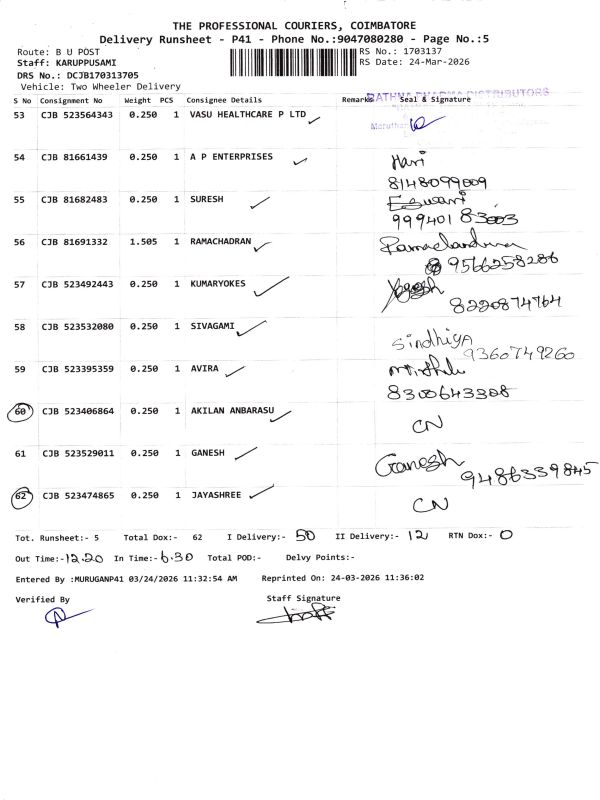 THE PROFESSIONAL COURIERS, COIMBATORE
Delivery Runsheet - P41 - Phone No.:9047080280 - Page No.:5
Route: B U POST
RS No.: 1703137
Staff: KARUPPUSAMI
RS Date: 24-Mar-2026
DRS No.: DCJB170313705
Vehicle: Two Wheeler Delivery
S No Consignment No Weight PCS Consignee Details Remarks Seal & Signature
RATHNA PHARMA DISTRIBUTORS
53 CJB 523564343 0.250 1 VASU HEALTHCARE P LTD
54 CJB 81661439 0.250 1 A P ENTERPRISES Hari
8148099009
55 CJB 81682483 0.250 1 SURESH Eswari
999401 83003
56 CJB 81691332 1.505 1 RAMACHADRAN Ramachandran
9566258286
57 CJB 523492443 0.250 1 KUMARYOKES Yogesh
8220874764
58 CJB 523532080 0.250 1 SIVAGAMI Sindhiya
9360749260
59 CJB 523395359 0.250 1 AVIRA
8300643308
60 CJB 523406864 0.250 1 AKILAN ANBARASU CN
61 CJB 523529011 0.250 1 GANESH Ganesh
9486339845
62 CJB 523474865 0.250 1 JAYASHREE CN
Tot. Runsheet:- 5 Total Dox:- 62 I Delivery:- 50 II Delivery:- 12 RTN Dox:- 0
Out Time:-12.20 In Time:-6.30 Total POD:- Delvy Points:-
Entered By :MURUGANP41 03/24/2026 11:32:54 AM Reprinted On: 24-03-2026 11:36:02
Verified By Staff Signature